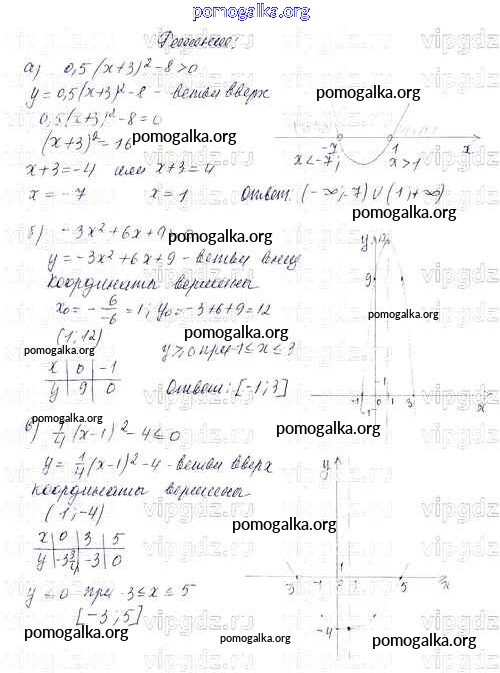 pomogalka.org
Решение:
а) 0,5(x+3)² - 8 > 0
y = 0,5(x+3)² - 8 - ветви вверх
pomogalka.org
0,5(x+3)² - 8 = 0
(x+3)² = 16
pomogalka.org
-7 1 x
x < -7; x > 1
x+3 = -4 или x+3 = 4
pomogalka.org
x = -7 x = 1 Ответ: (-∞; -7) ∪ (1; +∞)
pomogalka.org
б) -3x² + 6x + 9
pomogalka.org
y = -3x² + 6x + 9 - ветви вниз
координаты вершины
x₀ = - 6/-6 = 1; y₀ = -3+6+9 = 12
pomogalka.org
(1; 12)
pomogalka.org
pomogalka.org
y ≥ 0 при -1 ≤ x ≤ 3
x 0 -1
y 9 0
Ответ: [-1; 3]
pomogalka.org
y
9
1
-1 1 3 x
pomogalka.org
в) 1/4 (x-1)² - 4 ≤ 0
pomogalka.org
y = 1/4 (x-1)² - 4 - ветви вверх
координаты вершины
(1; -4)
pomogalka.org
x 0 3 5
y -3 3/4 -3 0
y ≤ 0 при -3 ≤ x ≤ 5
[-3; 5]
pomogalka.org
pomogalka.org
pomogalka.org
y
1
-3 -1 1 5 x
-4
vipgdz.ru